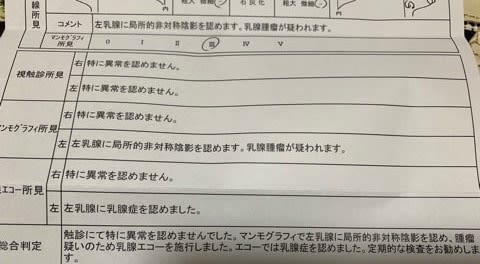 線所見
粗大 微細
石灰化
粗大 微細
コメント 左乳腺に局所的非対称陰影を認めます。乳腺腫瘤が疑われます。
マンモグラフィ所見 0 I II III IV V
視触診所見 右 特に異常を認めません。
左 特に異常を認めません。
マンモグラフィ所見 右 特に異常を認めません。
左 左乳腺に局所的非対称陰影を認めます。乳腺腫瘤が疑われます。
エコー所見 右 特に異常を認めません。
左 左乳腺に乳腺症を認めました。
総合判定 触診にて特に異常を認めませんでした。マンモグラフィで左乳腺に局所的非対称陰影を認め、腫瘤
疑いのため乳腺エコーを施行しました。エコーでは乳腺症を認めました。定期的な検査をお勧めしま
す。